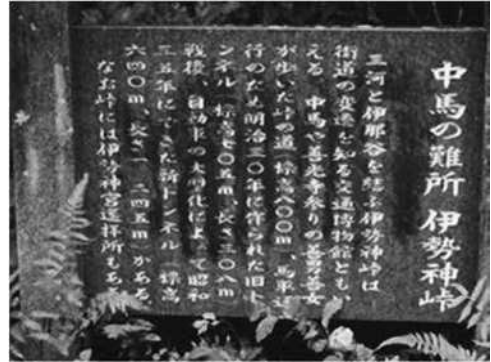 中馬の難所 伊勢神峠
三河と伊那谷を結ぶ伊勢神峠は
街道の変遷を知る交通博物館ともい
える。中馬や善光寺参りの善男善女
が歩いた峠の道(標高八〇〇m、馬車通
行のため明治三〇年に穿られた旧ト
ンネル(標高七〇五m、長さ三〇八m
戦後、自動車の大型化によって昭和
三五年にできた新トンネル(標高
六四〇m、長さ一 二四五m)がある。
なお峠には伊勢神宮遥拝所もある